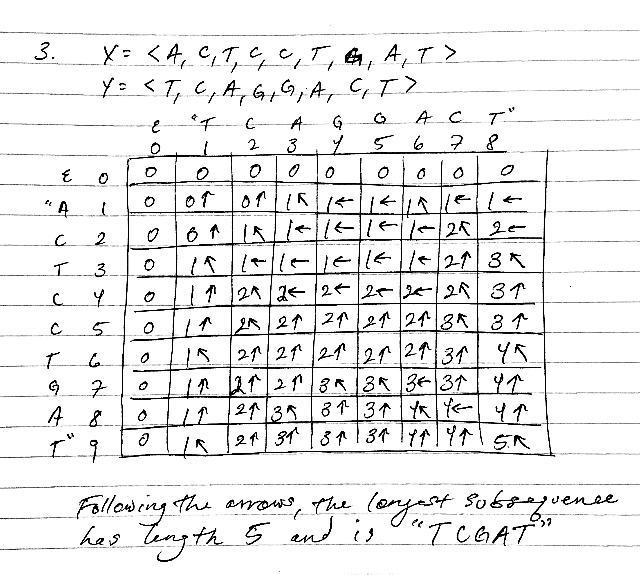 3. X = <A, C, T, C, C, T, G, A, T>
Y = <T, C, A, G, G, A, C, T>
ε "T C A G G A C T"
0 1 2 3 4 5 6 7 8
ε 0 0 0 0 0 0 0 0 0 0
"A 1 0 0↑ 0↑ 1↖ 1← 1← 1↖ 1← 1←
C 2 0 0↑ 1↖ 1← 1← 1← 1← 2↖ 2←
T 3 0 1↖ 1← 1← 1← 1← 1← 2↑ 3↖
C 4 0 1↑ 2↖ 2← 2← 2← 2← 2↖ 3↑
C 5 0 1↑ 2↖ 2↑ 2↑ 2↑ 2↑ 3↖ 3↑
T 6 0 1↖ 2↑ 2↑ 2↑ 2↑ 2↑ 3↑ 4↖
G 7 0 1↑ 2↑ 2↑ 3↖ 3↖ 3← 3↑ 4↑
A 8 0 1↑ 2↑ 3↖ 3↑ 3↑ 4↖ 4← 4↑
T" 9 0 1↖ 2↑ 3↑ 3↑ 3↑ 4↑ 4↑ 5↖
Following the arrows, the longest subsequence
has length 5 and is "TCGAT"